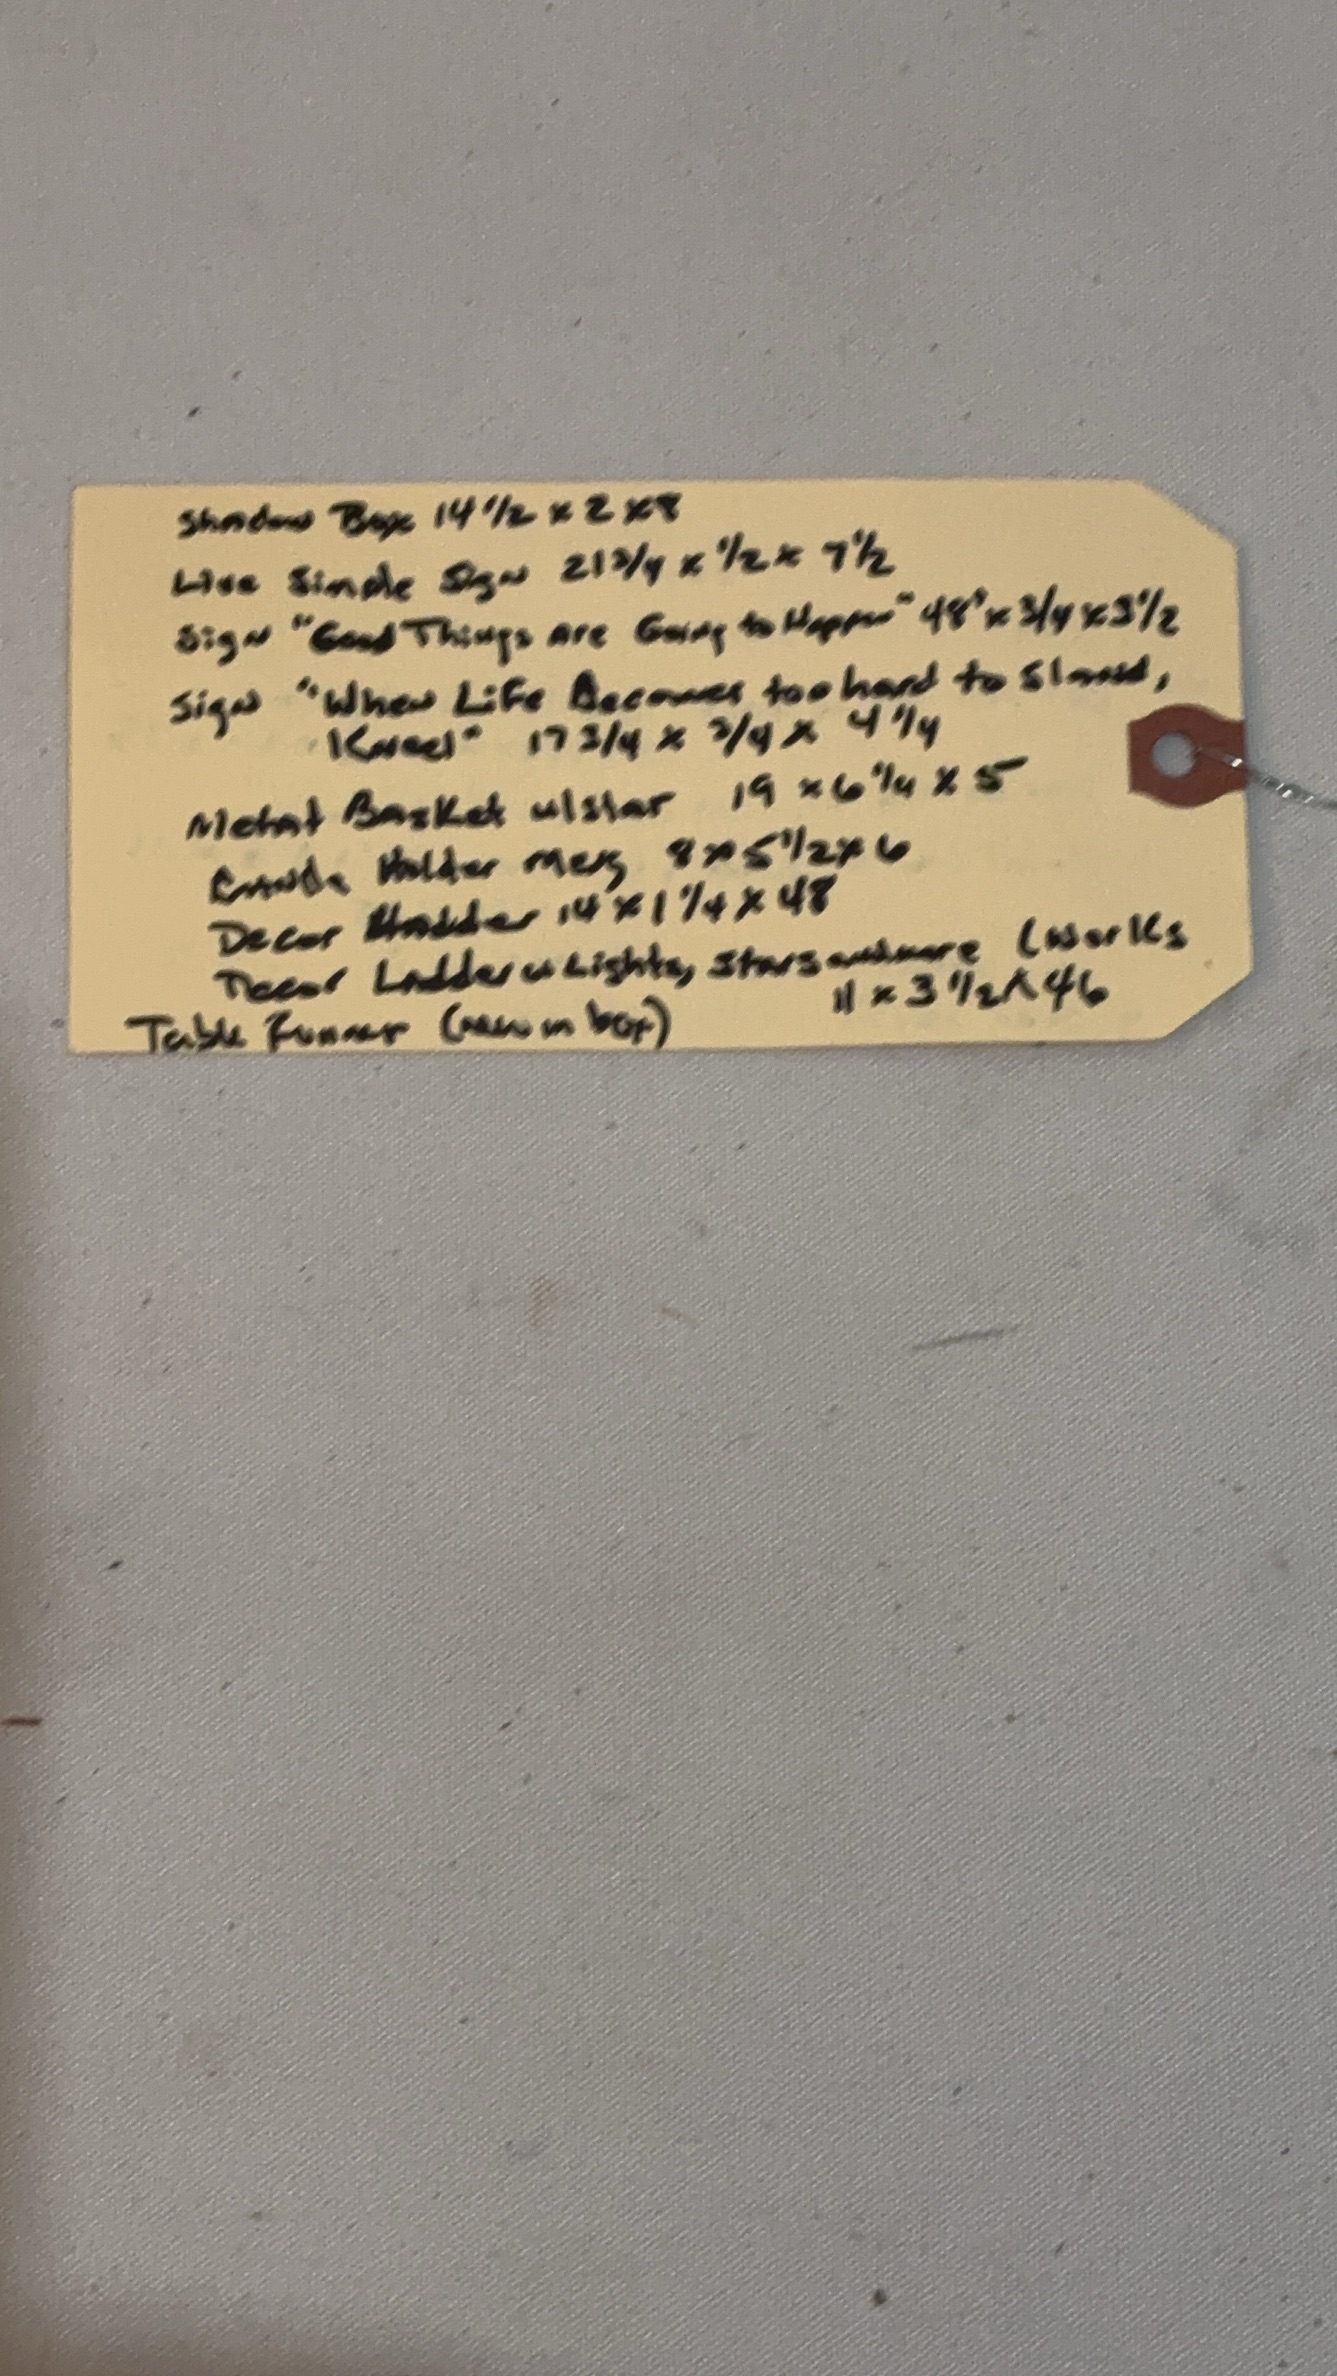 Shadow Box 14 1/2 x 2 x 8
Live Simple Sign 21 3/4 x 1/2 x 7 1/2
Sign "Good Things are Going to Happen" 48" x 3/4 x 3 1/2
Sign "When Life Becomes too hard to Stand,
Kneel" 17 3/4 x 3/4 x 4 1/4
Metal Basket w/star 19 x 6 1/4 x 5
Candle Holder 8 x 5 1/2 x 6
Decor 14 x 1 1/4 x 48
Decor Ladder w Lights, Stars and more (Works
11 x 3 1/2 x 46
Table Runner (new in box)